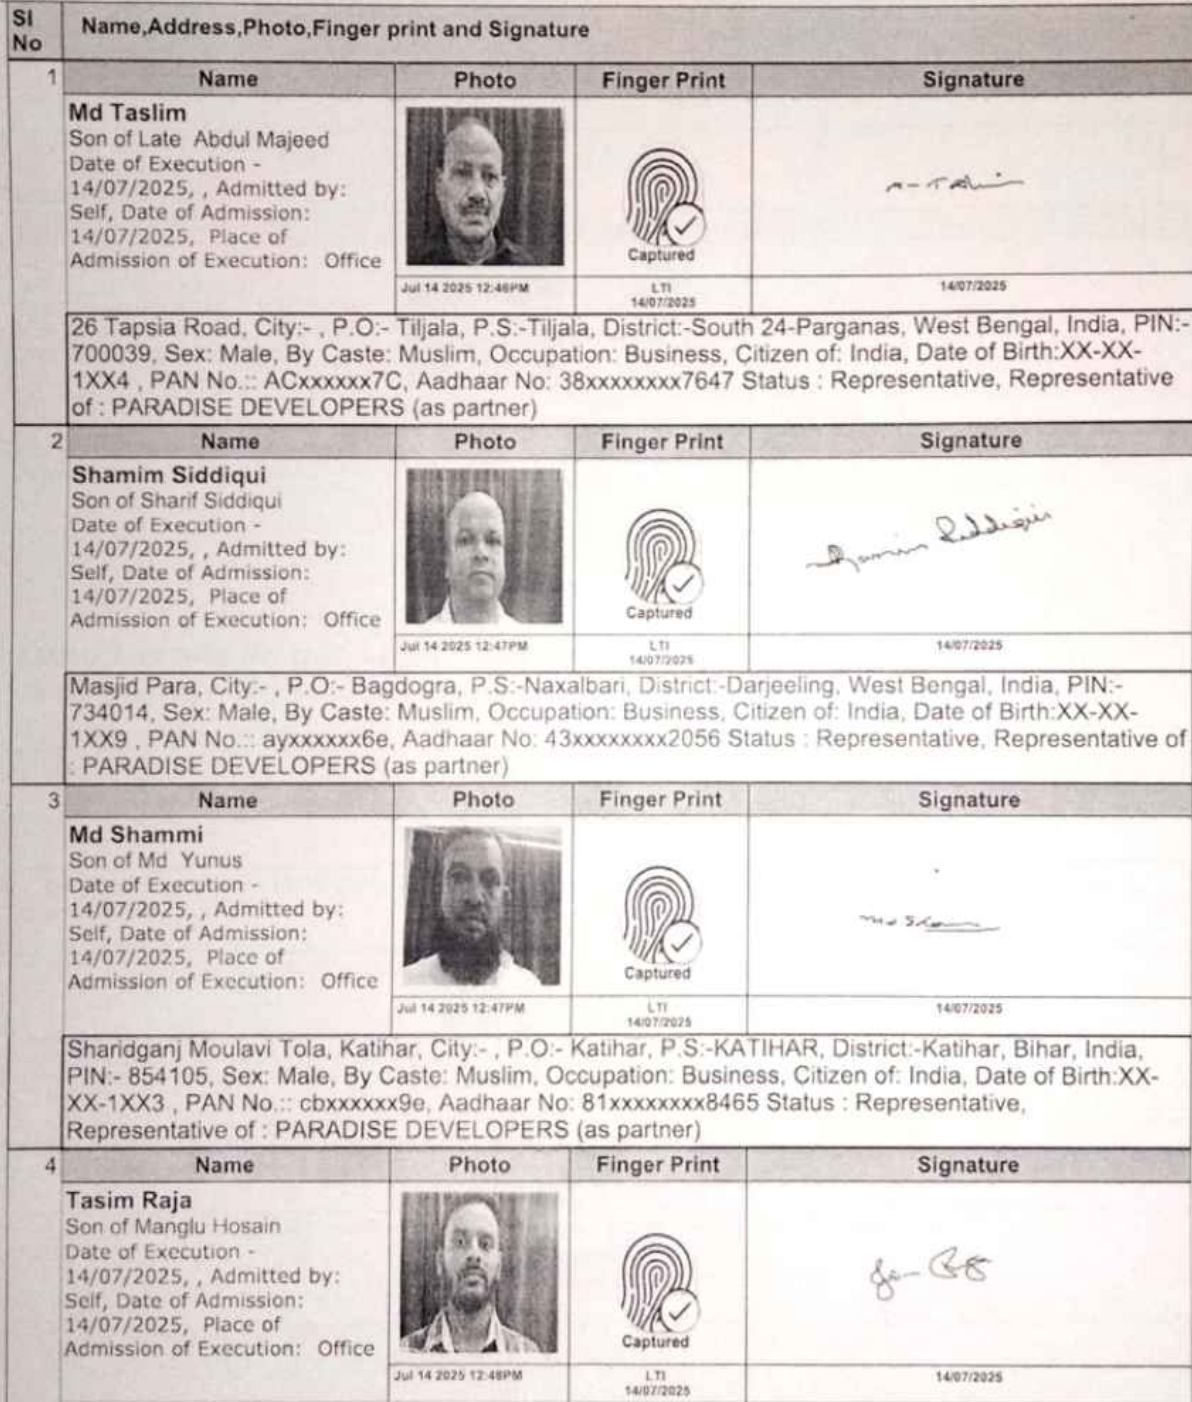 Sl No
Name,Address,Photo,Finger print and Signature
1
Name Photo Finger Print Signature
Md Taslim
Son of Late Abdul Majeed
Date of Execution -
14/07/2025, , Admitted by:
Self, Date of Admission:
14/07/2025, Place of
Admission of Execution: Office
Captured
Jul 14 2025 12:46PM
LTI
14/07/2025
14/07/2025
26 Tapsia Road, City:- , P.O:- Tiljala, P.S:-Tiljala, District:-South 24-Parganas, West Bengal, India, PIN:-
700039, Sex: Male, By Caste: Muslim, Occupation: Business, Citizen of: India, Date of Birth:XX-XX-
1XX4 , PAN No.:: ACxxxxxx7C, Aadhaar No: 38xxxxxxxx7647 Status : Representative, Representative
of : PARADISE DEVELOPERS (as partner)
2
Name Photo Finger Print Signature
Shamim Siddiqui
Son of Sharif Siddiqui
Date of Execution -
14/07/2025, , Admitted by:
Self, Date of Admission:
14/07/2025, Place of
Admission of Execution: Office
Captured
Siddiqui
Jul 14 2025 12:47PM
LTI
14/07/2025
14/07/2025
Masjid Para, City:- , P.O:- Bagdogra, P.S:-Naxalbari, District:-Darjeeling, West Bengal, India, PIN:-
734014, Sex: Male, By Caste: Muslim, Occupation: Business, Citizen of: India, Date of Birth:XX-XX-
1XX9 , PAN No.:: ayxxxxxx6e, Aadhaar No: 43xxxxxxxx2056 Status : Representative, Representative of
: PARADISE DEVELOPERS (as partner)
3
Name Photo Finger Print Signature
Md Shammi
Son of Md Yunus
Date of Execution -
14/07/2025, , Admitted by:
Self, Date of Admission:
14/07/2025, Place of
Admission of Execution: Office
Captured
Jul 14 2025 12:47PM
LTI
14/07/2025
14/07/2025
Sharidganj Moulavi Tola, Katihar, City:- , P.O:- Katihar, P.S:-KATIHAR, District:-Katihar, Bihar, India,
PIN:- 854105, Sex: Male, By Caste: Muslim, Occupation: Business, Citizen of: India, Date of Birth:XX-
XX-1XX3 , PAN No.:: cbxxxxxx9e, Aadhaar No: 81xxxxxxxx8465 Status : Representative,
Representative of : PARADISE DEVELOPERS (as partner)
4
Name Photo Finger Print Signature
Tasim Raja
Son of Manglu Hosain
Date of Execution -
14/07/2025, , Admitted by:
Self, Date of Admission:
14/07/2025, Place of
Admission of Execution: Office
Captured
Jul 14 2025 12:48PM
LTI
14/07/2025
14/07/2025